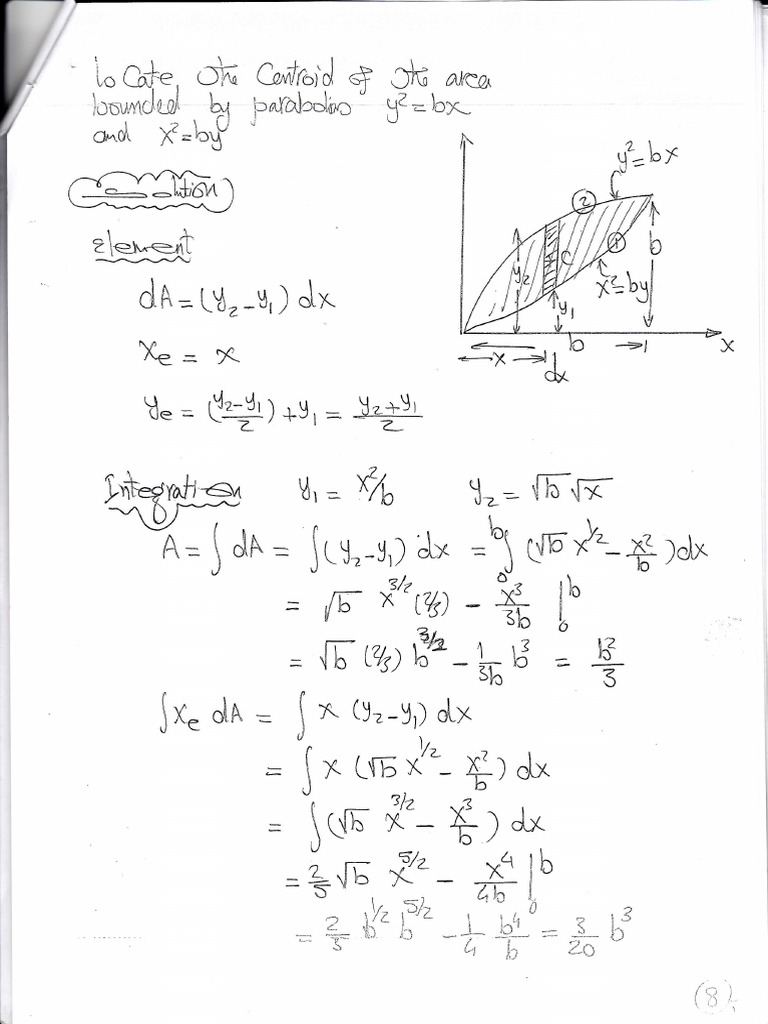 Locate the Centroid of the area
bounded by parabolas y² = bx
and x² = by
Solution
Element
dA = (y₂ - y₁) dx
xₑ = x
yₑ = (y₂-y₁/2) + y₁ = y₂+y₁/2
y² = bx
2
1
C
b
y₂
x² = by
y₁
b
x
x
dx
Integration y₁ = x²/b y₂ = √b √x
A = ∫ dA = ∫(y₂-y₁) dx = ᵇ∫₀ (√b x^1/2 - x²/b) dx
= √b x^3/2 (2/3) - x³/3b |ᵇ₀
= √b (2/3) b^3/2 - 1/3b b³ = b²/3
∫xₑ dA = ∫ x (y₂-y₁) dx
= ∫ x (√b x^1/2 - x²/b) dx
= ∫(√b x^3/2 - x³/b) dx
= 2/5 √b x^5/2 - x⁴/4b |ᵇ₀
= 2/5 b^1/2 b^5/2 - 1/4 b⁴/b = 3/20 b³
(8)